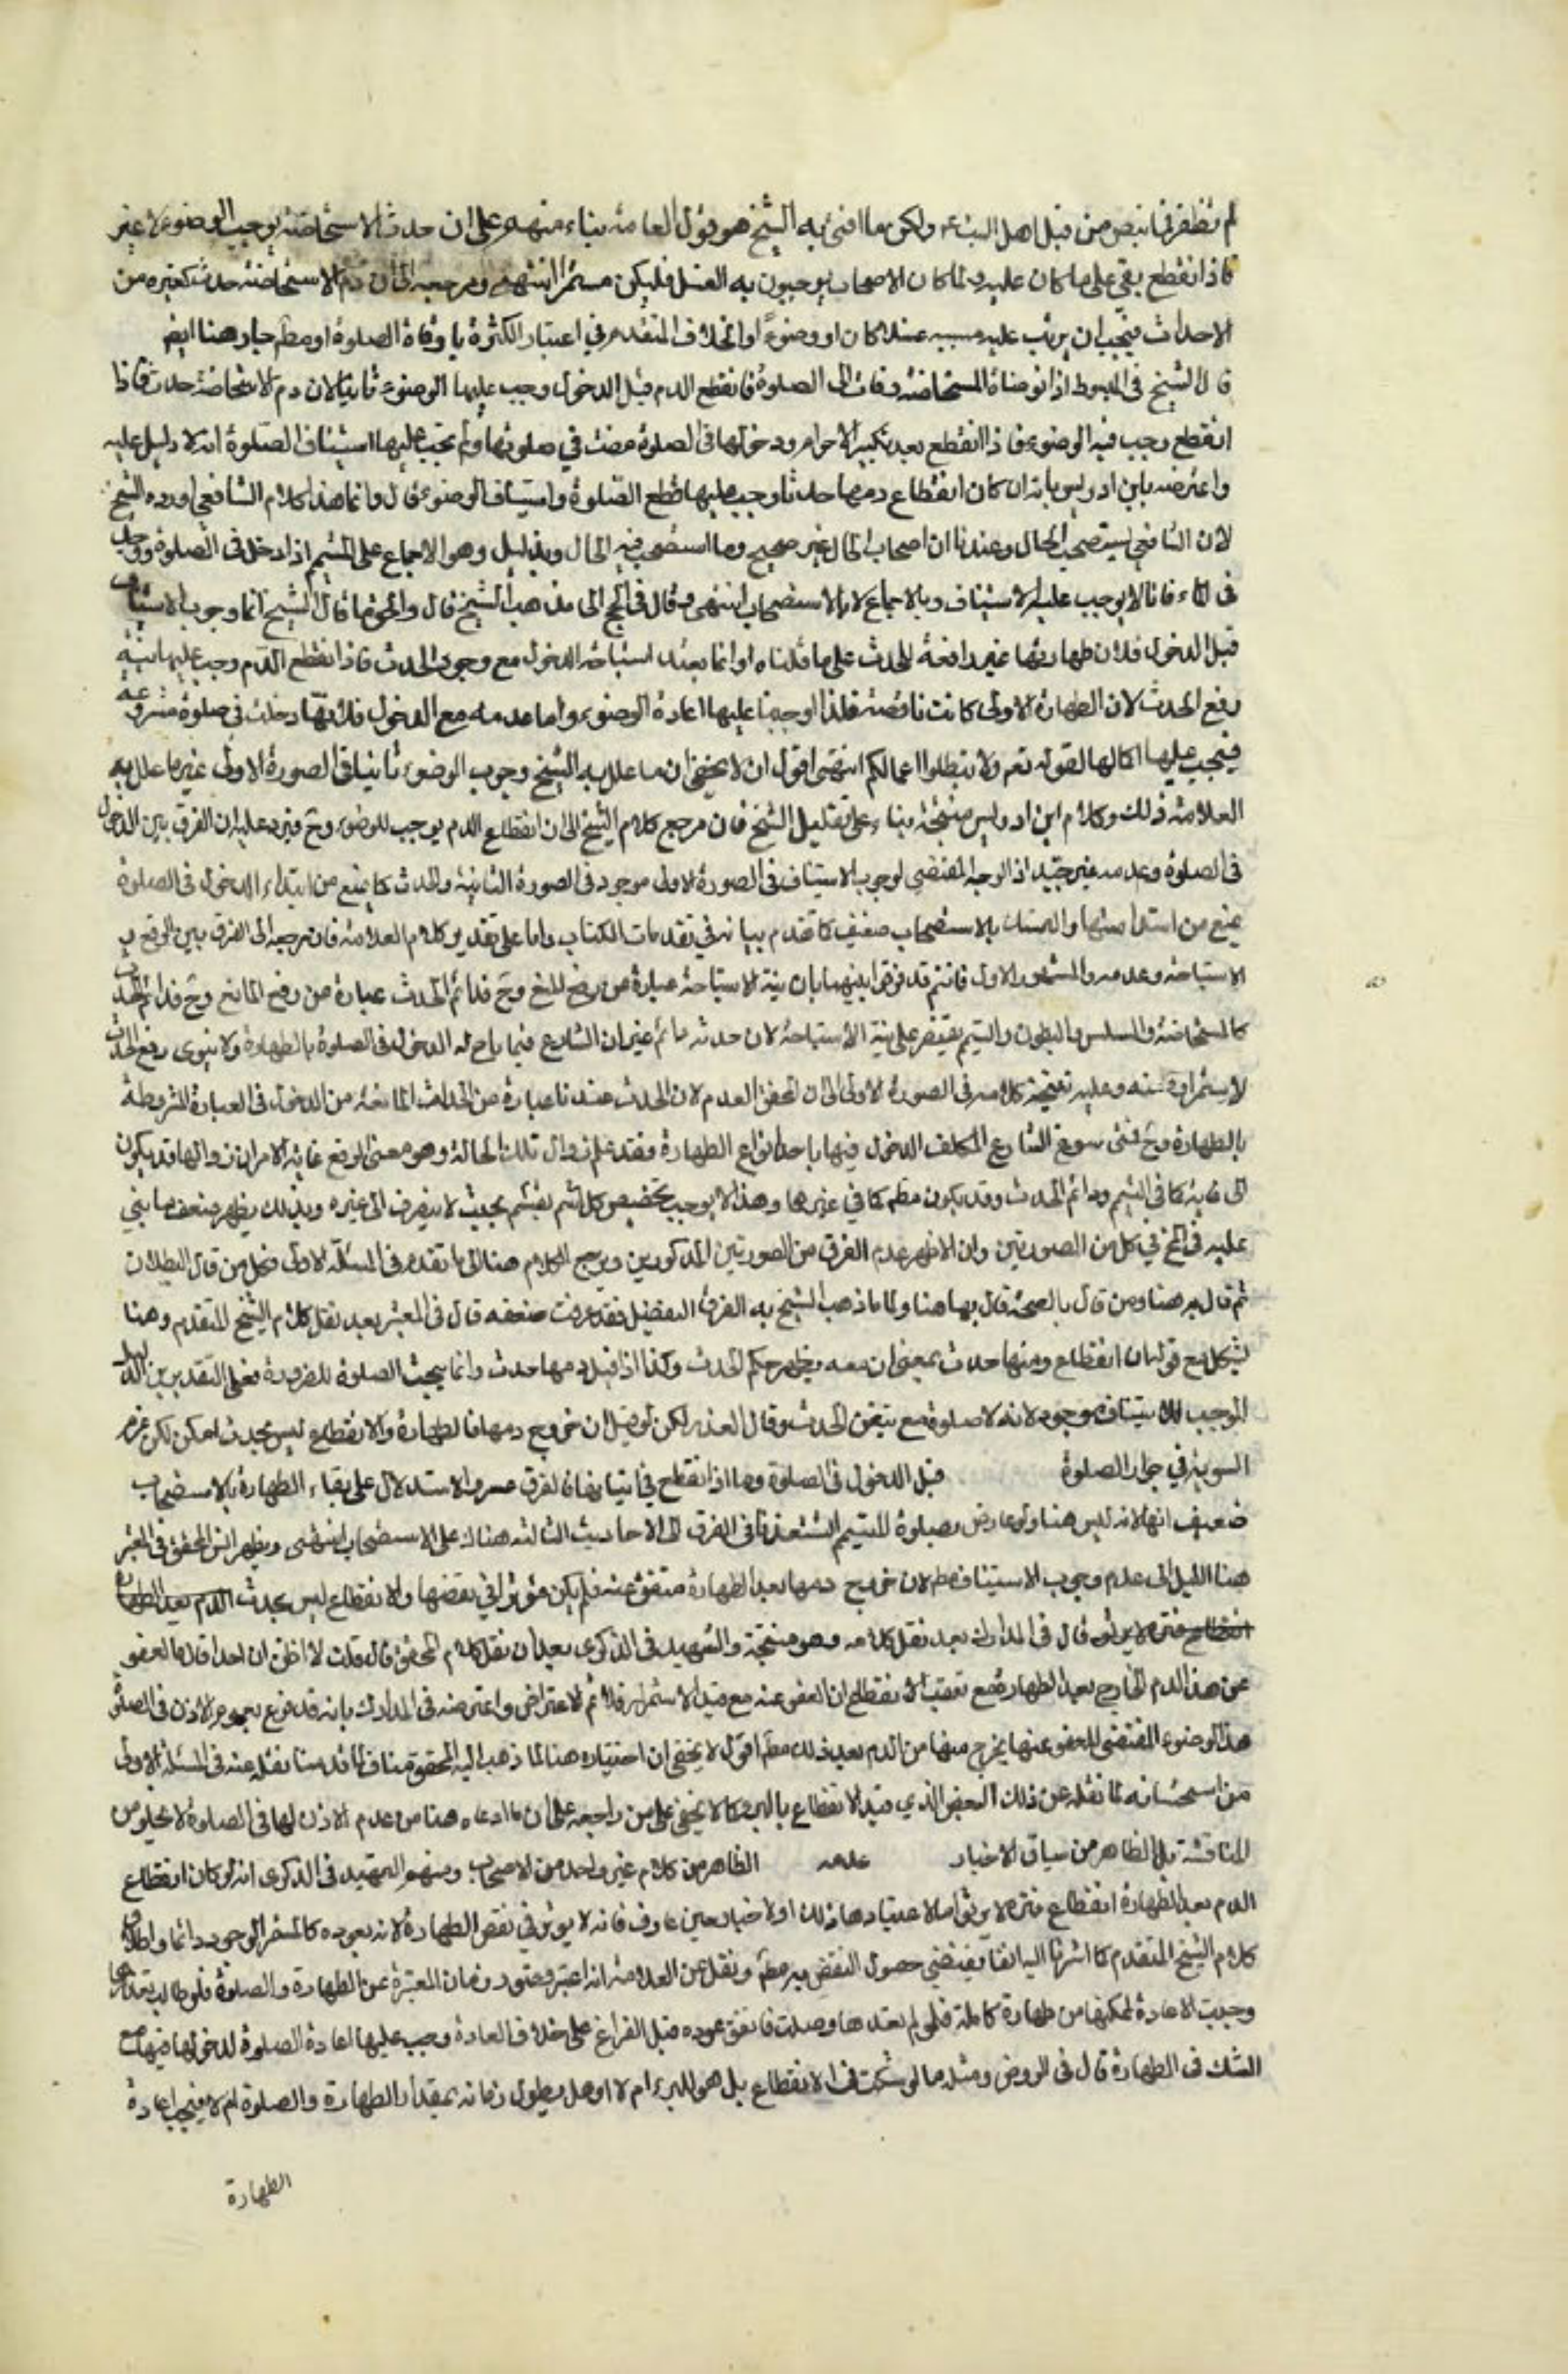 لم نظفر بها بنص من قبل اهل البيت ع ولكن ما افتى به الشيخ هو قول العامة بناء منهم على ان حدث الاستحاضة يوجب الوضوء لا غير
فاذا انقطع بقي على ما كان عليه ولما كان الاصحاب يوجبون به الغسل فليكن مستمرا انتهى ومرجعه الى ان دم الاستحاضة حدث كغيره من
الاحداث فيجب ان يرتب عليه مسببه غسلا كان او وضوءً او الخلاف المتقدم في اعتبار الكثرة باوقات الصلوة او مطم جار هنا ايضم
قال الشيخ في المبسوط اذا توضأت المستحاضة وقامت الى الصلوة فانقطع الدم قبل الدخول وجب عليها الوضوء ثانيا لان دم الاستحاضة حدث فاذا
انقطع وجب فيه الوضوء فاذا انقطع بعد تكبيرة الاحرام ودخولها في الصلوة مضت في صلوتها ولم يجب عليها استيناف الصلوة انه لا دليل عليه
واعترضه بابن ادريس بانه ان كان انقطاع دمها حدثا وجب عليها قطع الصلوة واستيناف الوضوء قال وانما هذا كلام الشافعي اورده الشيخ
لان الشافعي يستصحب الحال وعندنا ان اصحاب الحال غير صحيح وما استصحب فيه الحال وبدليل وهو الاجماع على المتيمم اذا دخل في الصلوة ووجد
في الماء فانا لا يوجب عليه الاستيناف وبالاجماع لا بالاستصحاب انتهى وقال في المخ الى مذهب الشيخ قال والحق ما قال الشيخ انما وجوب الاستيناف
قبل الدخول فلان طهارتها غير رافعة للحدث على ما قلناه اوانما يفيد استباحة الدخول مع وجود الحدث فاذا انقطع الدم وجب عليها نية
رفع الحدث لان الطهارة الاولى كانت ناقصة فلذا اوجبنا عليها اعادة الوضوء واما عدمه مع الدخول فلانها دخلت في صلوة مشروعة
فيجب عليها اكمالها لقوله تعم ولا تبطلوا اعمالكم انتهى اقول ان لا يخفى ان ما علل به الشيخ وجوب الوضوء ثانيا في الصورة الاولى غير ما علل به
العلامة ذلك وكلام ابن ادريس متجه بناء على تعليل الشيخ فان مرجع كلام الشيخ الى ان انقطاع الدم يوجب للوضوء وح فيرد عليه ان الفرق بين الدخول
في الصلوة وعدمه غير جيد اذ الوجه المقتضي لوجوب الاستيناف في الصورة الاولى موجود في الصورة الثانية والحدث كما يمنع من ابتداء الدخول في الصلوة
يمنع من استدامتها والتمسك بالاستصحاب ضعيف كما تقدم بيانه في تقدمات الكتاب واما على تقدير كلام العلامة فان مرجعه الى الفرق بين الرفع ب
الاستباحة وعدمه والمشهور الاول فانتم قد فرقوا بينهما بان نية الاستباحة عبارة من رفع المنع وح فدائم الحدث عبارة من رفع المانع وح فدائم الحدث
كالمستحاضة والسلس والبطون والتيمم يقتصر على نية الاستباحة لان حدثه دائم غير ان الشارع فيما باح له الدخول في الصلوة بالطهارة ولا ينوى رفع الحدث
لاستمراره منه وعليه تتجه كلامه في الصورة الاولى الى ان تحقق العدم لان الحدث عندنا عبارة من الحالة المانعة من الدخول في العبارة المشروطة
بالطهارة وح فمتى سوغ الشارع المكلف الدخول فيها باحد انواع الطهارة فقد علم زوال تلك الحالة وهو معنى الرفع غاية الامر ان زوالها قد يكون
الى غاية كما في التيمم ودائم الحدث وقد يكون مطم كما في غيرها وهذا لا يوجب تخصيص كل قسم بقسم بحيث لا ينصرف الى غيره وبذلك يظهر ضعف ما بني
عليه في المخ في كل من الصورتين وان الاظهر عدم الفرق من الصورتين المذكورين ويرجع الكلام هنا الى ما تقدم في المسئلة الاولى فكل من قال البطلان
ثم قال به هنا ومن قال بالصحة قال بها هنا ولما ما ذهب الشيخ به الفرق التفضيل فقد عرفت ضعفه قال في المعتبر بعد نقل كلام الشيخ المتقدم وهنا
يشكل مع قوله ان انقطاع دمها حدث بمعنى ان معه يظهر حكم الحدث وكذا اذا قبل دمها حدث وانما يبحث الصلوة للضرورة فعلى التقديرين الدليل
الموجب للاستيناف موجود لانه لا صلوة مع تيقن الحدث وقال العذر لكن لو قيل ان خروج دمها فالطهارة والانقطاع ليس بحدث امكن لكن عزم
السوية في جواز الصلوة قبل الدخول في الصلوة وما اذا انقطع في اثنائها فان الفرق عسر والاستدلال على بقاء الطهارة بالاستصحاب
ضعيف انها لانه ليس هنا ولو عارض بصلوة المتيمم استعذنا في الفرق الى الاحاديث الثالثه هناك على الاستصحاب انتهى ويظهر ان المحقق في المعتبر
هنا الميل الى عدم وجوب الاستيناف مطم لان خروج دمها بعد الطهارة متفق عنه فلم يكن مؤثرا في نقضها والانقطاع ليس بحدث الدم بعد الطهارة
انقطاع فترة لا يؤثر قال في المدارك بعد نقل كلامه وهو متجه والشهيد في الذكرى بعد ان نقل كلام المحقق قال قلت لا اظن ان احدا قال بالعفو
عن هذا الدم الخارج بعد الطهارة مع تعقب الانقطاع ان العفو عنه مع قيد الاستمرار فلا تم الاعتراض واعترضه في المدارك بانه قد فرغ بعموم الاذن في الصلوة
هذا الوضوء المقتضي للعفو عنها يخرج منها من الدم بعد ذلك مطم اقول لا يخفى ان اختياره هنا لما ذهب اليه المحقق مناف لما قدمنا نقله عنه في المسئلة الاولى
من استحسانه لما نقله عن ذلك البعض الذي قيد الانقطاع بالبرء كما لا يخفى على من راجعه على ان ما ادعاه هنا من عدم الاذن لها في الصلوة لا يخلو من
المناقشة بل الظاهر من سياق الاخبار عدمه الظاهر من كلام غير واحد من الاصحاب ومنهم الشهيد في الذكرى انه لو كان انقطاع
الدم بعد الطهارة انقطاع فترة لا يؤثر املا اعتيادها ذلك او لاخبار معين عارف فانه لا يؤثر في نقض الطهارة لانه يعوده كالمستمر الوجود دائما واطلاق
كلام الشيخ المتقدم كما اشرنا اليه انفا يقتضي حصول النقض به مطم ونقل عن العلامة انه اعتبر قصور زمان المعتبرة عن الطهارة والصلوة فلو طالت بقدرها
وجبت الاعادة لتمكنها من طهارة كاملة فلو لم تعتدها وصلت فاتفق عوده قبل الفراغ على خلاف العادة وجب عليها اعادة الصلوة لدخولها فيها مع
الشك في الطهارة قال في الروض ومثله ما لو شكت في الانقطاع بل هو للبرء ام لا او هل يطول زمانه بمقدار الطهارة والصلوة ام لا فيجب اعادة
الطهارة